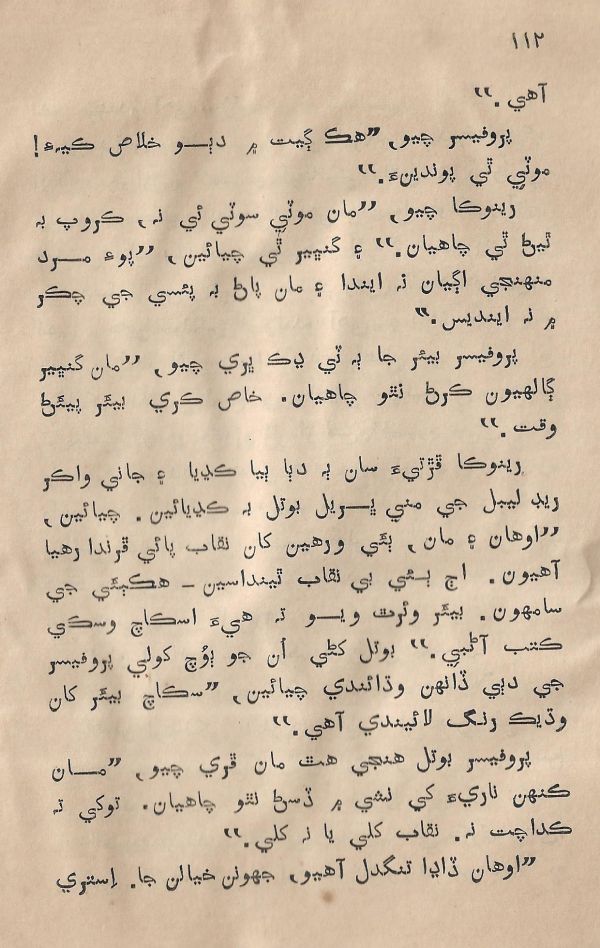 ١١٢
آهي.“
پروفيسر چيو, ”هڪ ڳيت ۾ دٻو خلاص ڪيہء!
موٽي ٿي پوندينءَ.“
رينوڪا چيو, ”مان موٽي سوٽي ئي نہ, ڪروپ بہ
ٿيڻ ٿي چاهيان.“ ۽ گنڀير ٿي چيائين, ”پوءِ مرد
منهنجي اڳيان نہ ايندا ۽ مان پاڻ بہ پئسي جي چڪر
۾ نہ اينديس.“
پروفيسر بيئر جا ٻہ ٽي ڍڪ ڀري چيو, ”مان گنڀير
ڳالهيون ڪرڻ نٿو چاهيان. خاص ڪري بيئر پيئڻ
وقت.“
رينوڪا ڦڙتيءَ سان ٻہ دٻا ٻيا ڪڍيا ۽ جاني واڪر
ريڊ ليبل جي مني ڀريل بوتل بہ ڪڍيائين. چيائين,
”اوهان ۽ مان, ٻئي ورهين کان نقاب پائي ڦرندا رهيا
آهيون. اڄ ٻئي بي نقاب ٿينداسين ـ هڪٻئي جي
سامهون. بيئر وئرٿ ويو تہ هيءَ اسڪاچ وسڪي
ڪتب آڻبي.“ بوتل کڻي اُن جو ٻوُچ کولي پروفيسر
جي دٻي ڏانهن وڌائيندي چيائين, ”سڪاچ بيئر کان
وڌيڪ رنگ لائيندي آهي.“
پروفيسر بوتل هنجي هٿ مان ڦري چيو, ”مان
ڪنهن ناريءَ کي نشي ۾ ڏسڻ نٿو چاهيان. توکي تہ
ڪداچت نہ. نقاب کلي يا نہ کلي.“
”اوهان ڏاڍا تنگدل آهيو, جهونن خيالن جا. اِستري